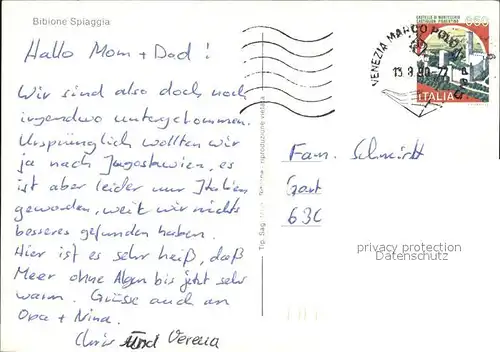 Bibione Spiaggia
Hallo Mom + Dad !
Wir sind also doch noch
irgendwo untergekommen.
Ursprünglich wollten wir
ja nach Jugoslawien, es
ist aber leider nur Italien
geworden, weil wir nichts
besseres gefunden haben.
Hier ist es sehr heiß, das
Meer ohne Algen bis jetzt sehr
warm. Grüsse auch an
Opa + Nina.
Chris und Verena
riproduzione vietata
CASTELLO DI MONTECCHIO
CASTIGLION FIORENTINO
650
ITALIA
VENEZIA MARCO POLO
13.8.90
Fam. Schmidt
630
privacy protection
Datenschutz